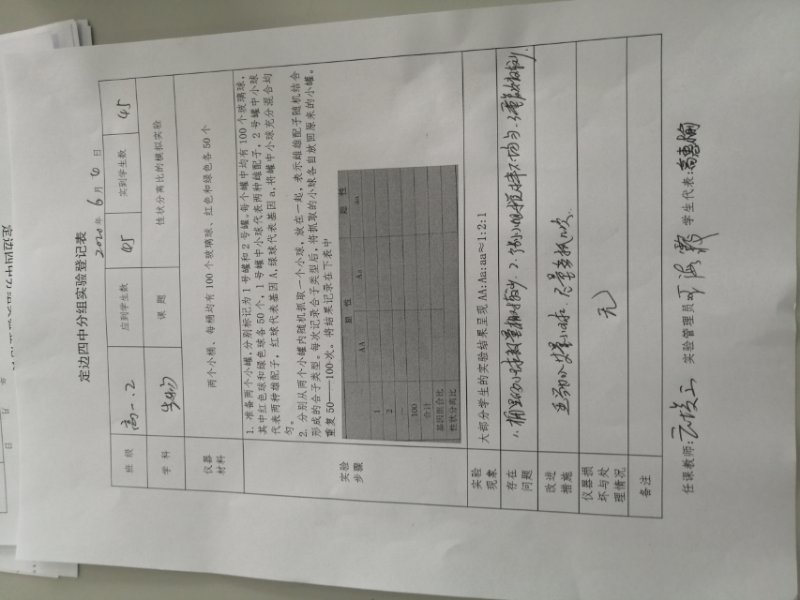 定边四中分组实验登记表
2020年6月10日
班 级 高一.2 应到学生数 45 实到学生数 45
学 科 生物 课 题 性状分离比的模拟实验
仪器材料 两个小桶、每桶均有 100 个玻璃球、红色和绿色各 50 个
实验步骤
1. 准备两个小罐,分别标记为 1 号罐和 2 号罐。每个罐中均有 100 个玻璃球,
其中红色球和绿色球各 50 个,1 号罐中小球代表两种雄配子,2 号罐中小球
代表两种雌配子,红球代表基因 A,绿球代表基因 a,将罐中小球充分混合均
匀。
2. 分别从两个小罐内随机抓取一个小球,放在一起,表示雌雄配子随机结合
形成的合子类型。每次记录合子类型后,将抓取的小球各自放回原来的小罐。
重复 50——100 次。将结果记录在下表中
显 性 隐 性
AA Aa aa
1
2
…
100
合计
基因组合比
性状分离比
实验现象 大部分学生的实验结果呈现 AA:Aa:aa≈1:2:1
存在问题 1、桶里的小球数量相对较少
改进措施
仪器损坏与处理情况 无
备注
任课教师: 实验管理员 学生代表: